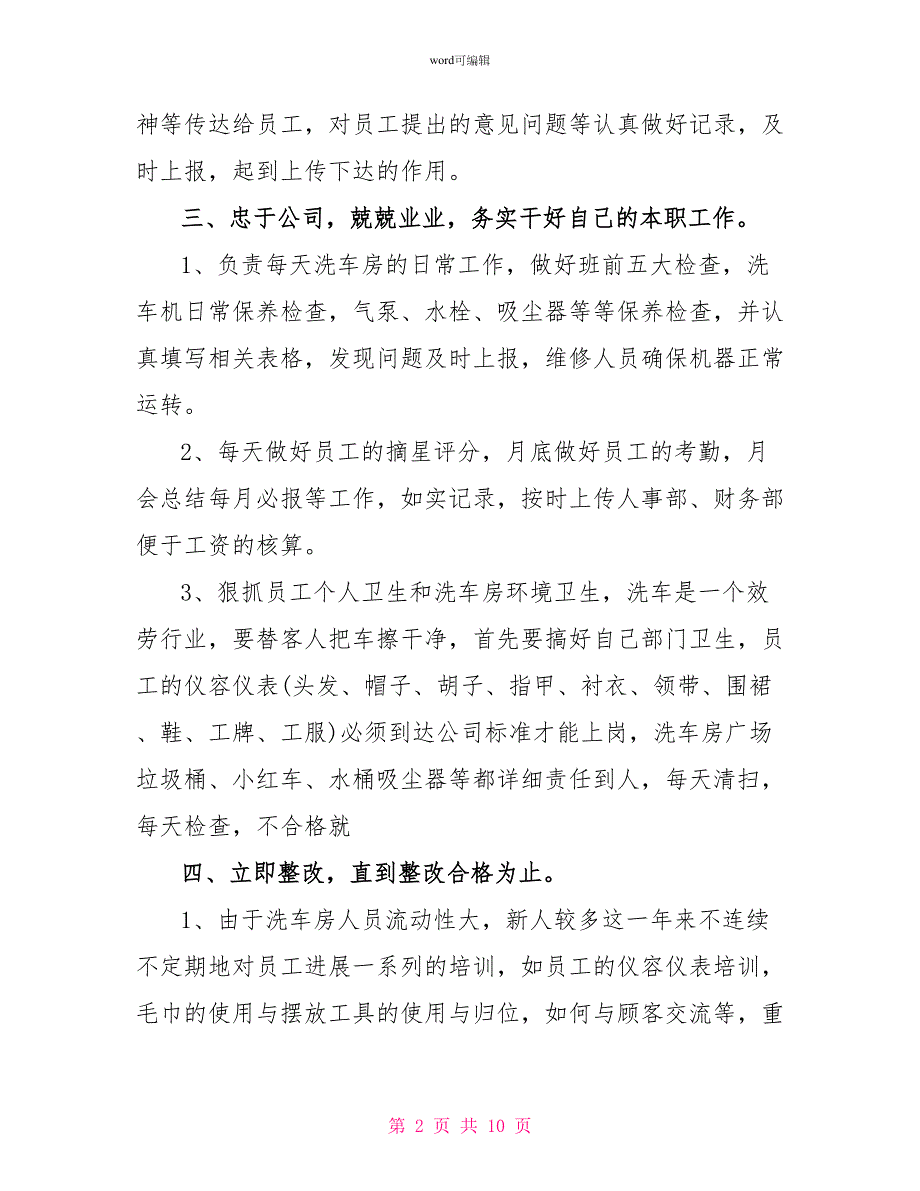 word可编辑
神等传达给员工，对员工提出的意见问题等认真做好记录，及
时上报，起到上传下达的作用。
三、忠于公司，兢兢业业，务实干好自己的本职工作。
1、负责每天洗车房的日常工作，做好班前五大检查，洗
车机日常保养检查，气泵、水栓、吸尘器等等保养检查，并认
真填写相关表格，发现问题及时上报，维修人员确保机器正常
运转。
2、每天做好员工的摘星评分，月底做好员工的考勤，月
会总结每月必报等工作，如实记录，按时上传人事部、财务部
便于工资的核算。
3、狠抓员工个人卫生和洗车房环境卫生，洗车是一个效
劳行业，要替客人把车擦干净，首先要搞好自己部门卫生，员
工的仪容仪表(头发、帽子、胡子、指甲、衬衣、领带、围裙
、鞋、工牌、工服)必须到达公司标准才能上岗，洗车房广场
垃圾桶、小红车、水桶吸尘器等都详细责任到人，每天清扫，
每天检查，不合格就
四、立即整改，直到整改合格为止。
1、由于洗车房人员流动性大，新人较多这一年来不连续
不定期地对员工进展一系列的培训，如员工的仪容仪表培训，
毛巾的使用与摆放工具的使用与归位，如何与顾客交流等，重
第 2 页 共 10 页